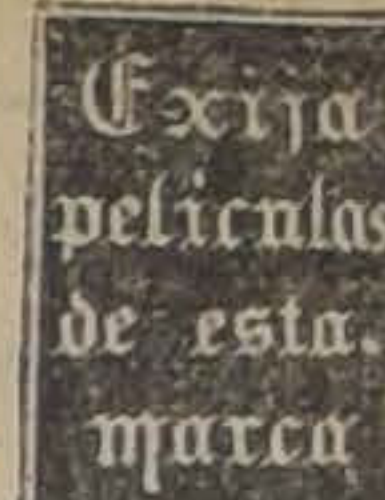 Exija
peliculas
de esta.
marca